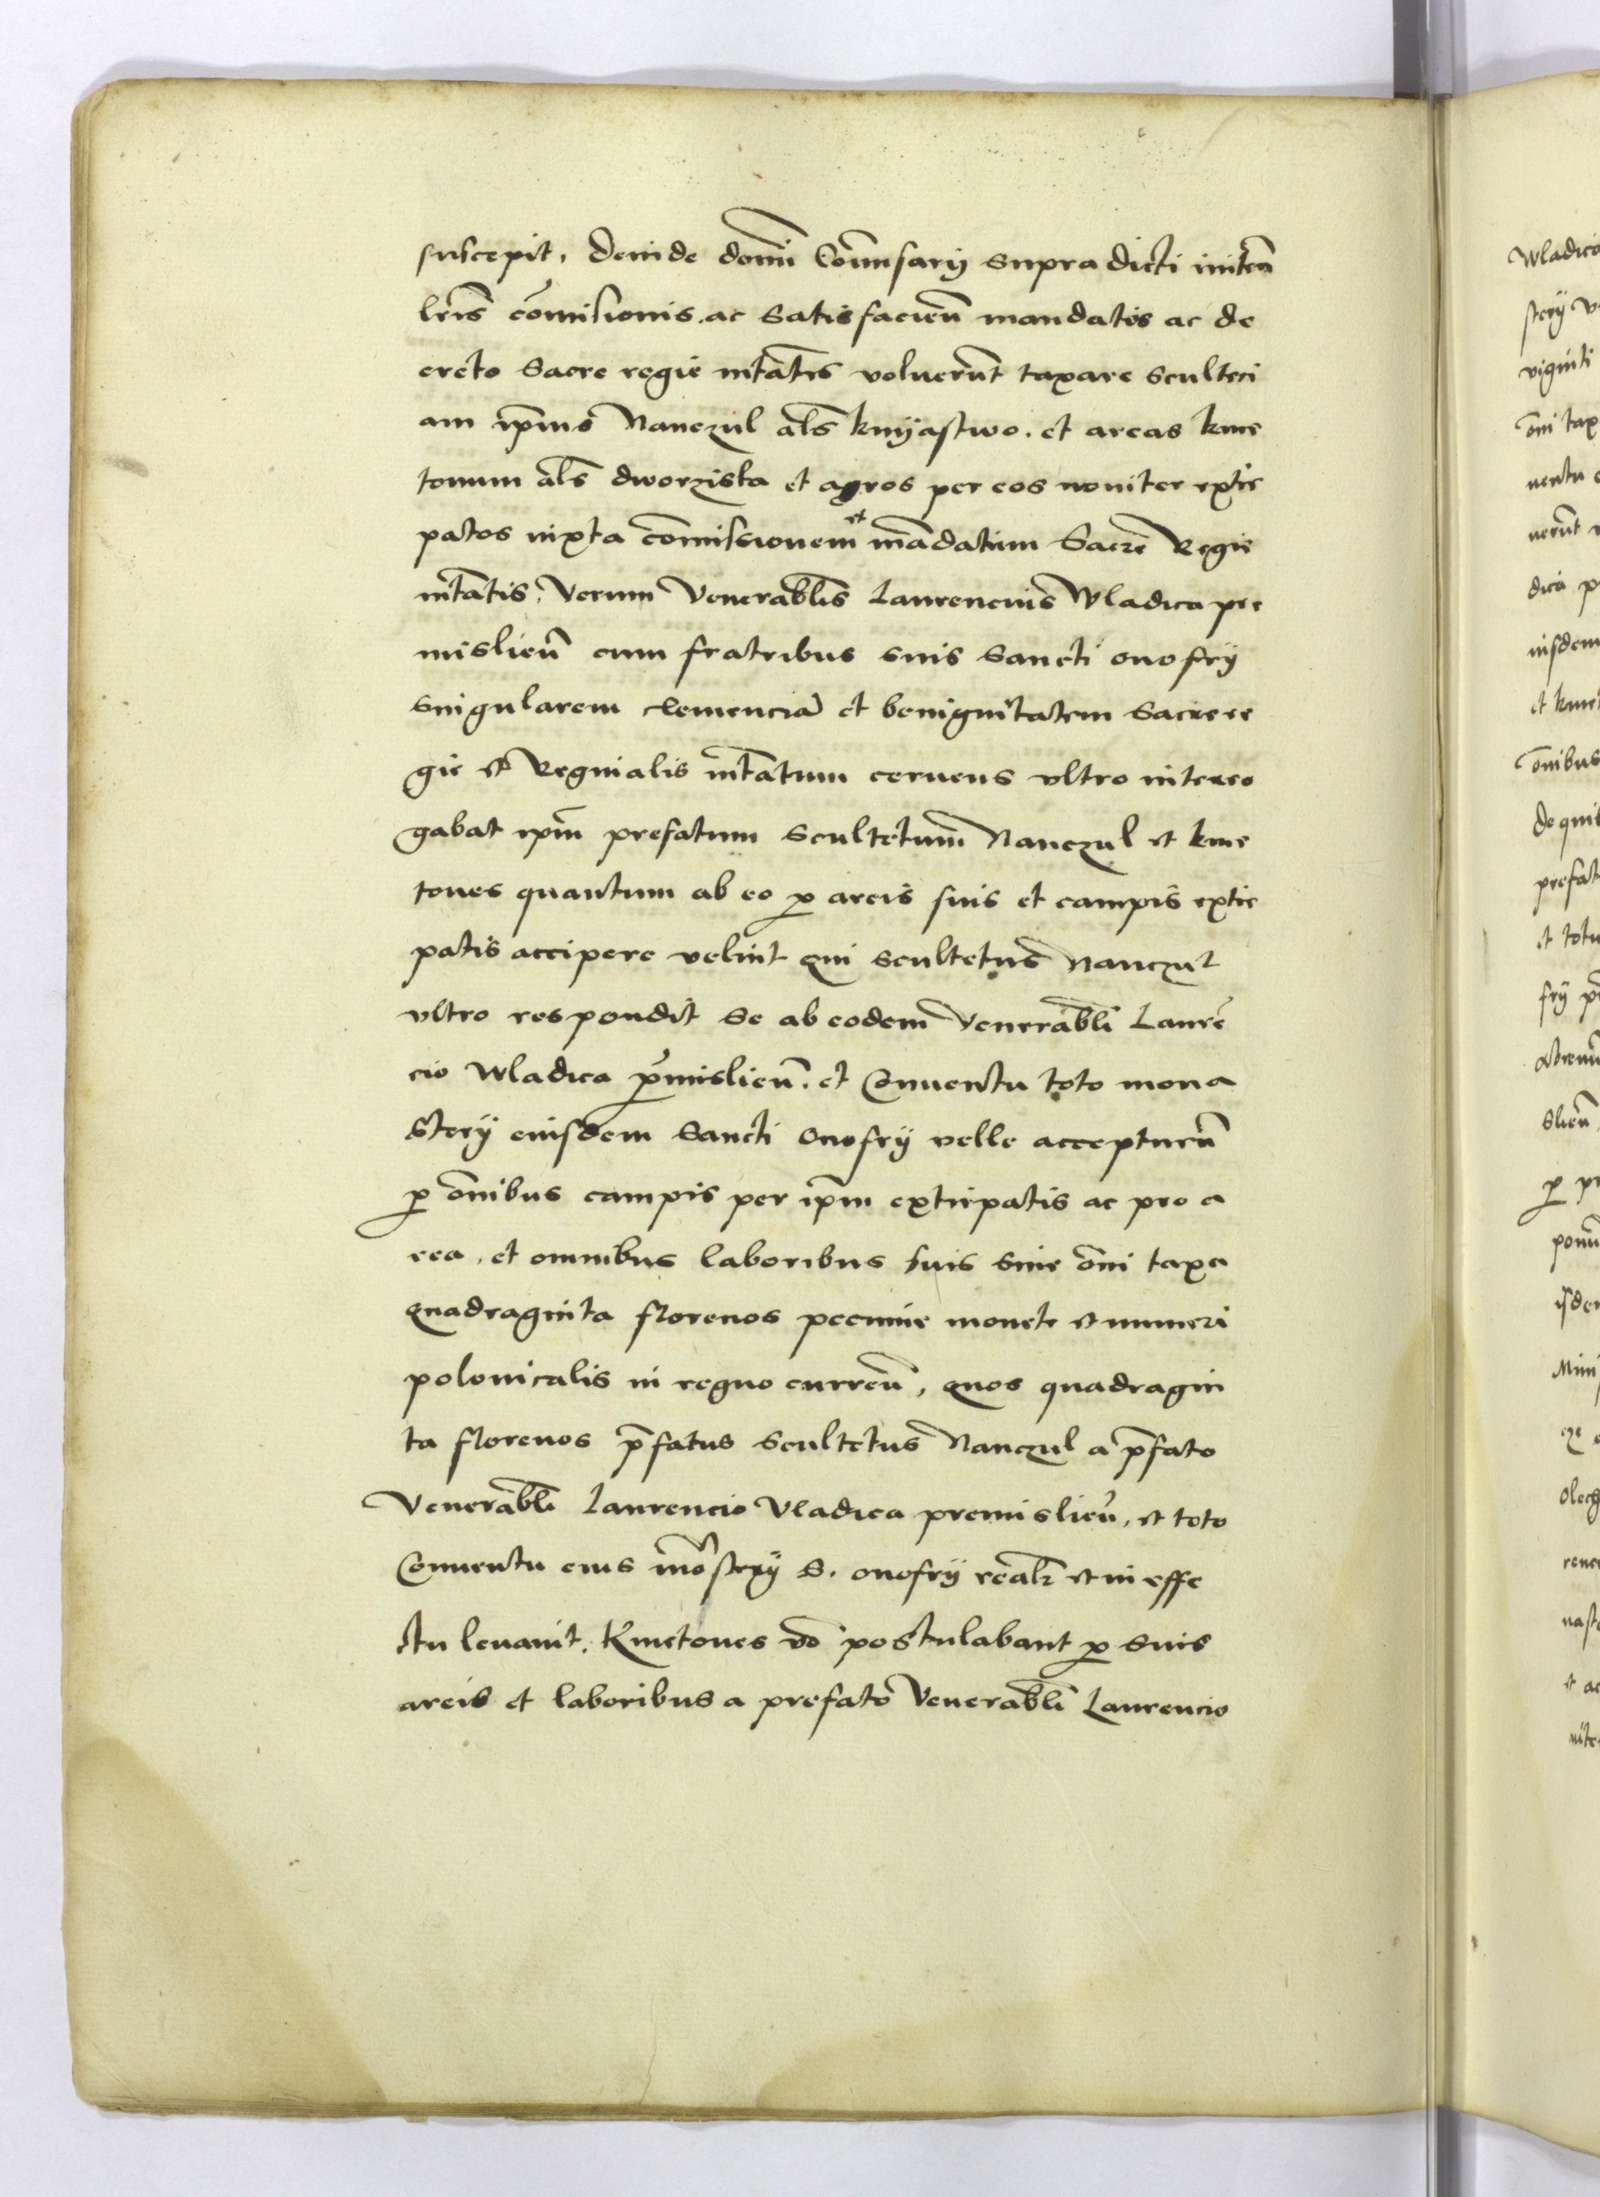 suscepit, Deinde domi Comissarij supra dicti initen
lrīs comissionis. ac satisfacien mandatis ac de
creto Sacre regie mtatis voluerunt taxare sculteci
am ipius Nanczul als knyastwo. et areas kme
tonum als dworzista et agros per eos noviter extir
patos iuxta comissionem et madatum Sacre Regie
mtatis, Verum Venerablis Laurencius Wladica pre
mislien cum fratribus suis Sancti onofrij
singularem clemencia et benignitatem Sacre re
gie et Reginalis mtatum cernens vltro interro
gabat ipm prefatum scultetum Nanczul et kme
tones quantum ab eo p areis suis et campis extir
patis accipere velint qui scultetus Nanczul
vltro respondit se ab eodem Venerabli Lauren
cio Wladica pmislien. et Conuentu toto mona
sterij eiusdem Sancti Onofrij velle accepturu
p omibus campis per ipm extirpatis ac pro a
rea. et omnibus laboribus suis sine omi taxa
quadraginta florenos pecunie monete et numeri
polonicalis in regno curren, quos quadragin
ta florenos pfatus scultetus Nanczul a pfato
Venerabli Laurencio Vladica premislien, et toto
Conuentu eius mostrij S. onofrij realr et in effe
ctu leuauit. Kmetones vo postulabant p suis
areis et laboribus a prefato Venerabli Laurencio